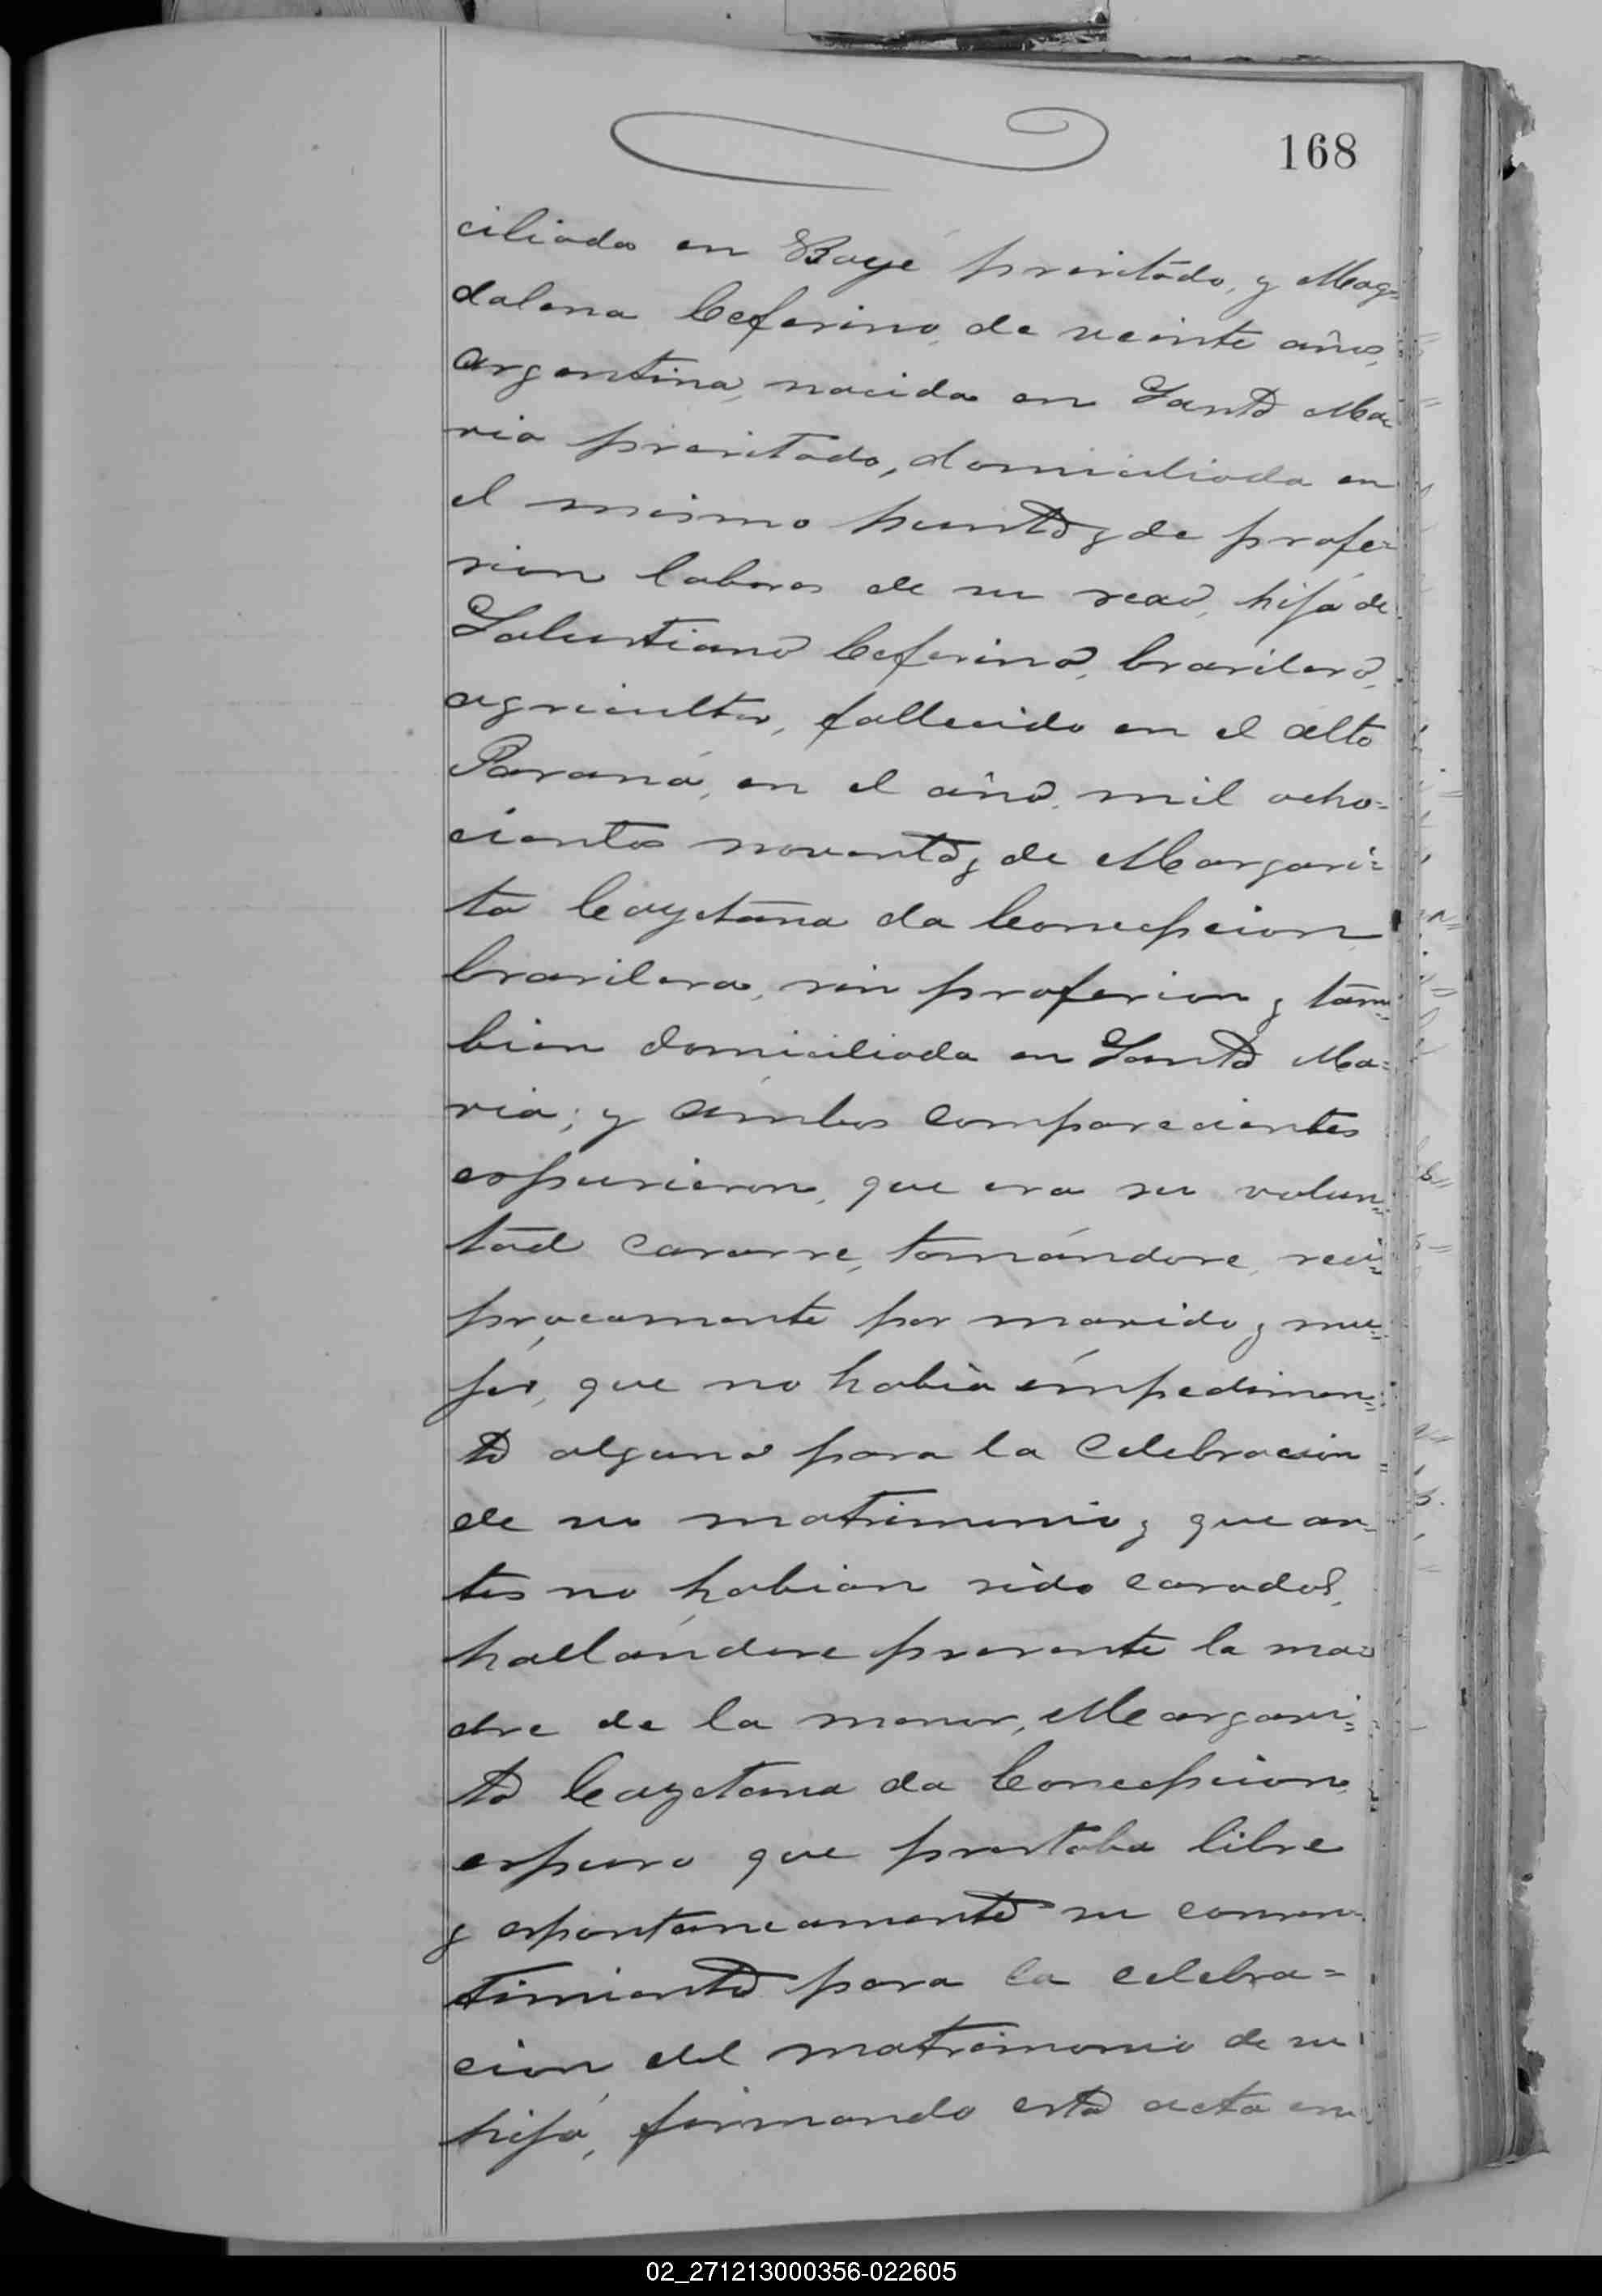 168
ciliada en Bagé precitado, y Mag=
dalena Ceferino, de veinte años,
argentina, nacida en Santa Ma=
ria precitado, domiciliada en
el mismo punto y de profe=
sion labores de su sexo, hija de
Salustiano Ceferino, brasilero,
agricultor, fallecido en el alto
Paraná, en el año mil ocho=
cientos noventa y de Margari=
ta Cayetana da Concepcion
brasilera, sin profesion y tam=
bien domiciliada en Santa Ma=
ria; y ambos comparecientes
espusieron, que era su volun=
tad casarse, tomándose, reci=
procamente por marido y mu=
jer, que no habia impedimen=
to alguno para la celebracion
de su matrimonio y que an=
tes no habian sido casados,
hallandose presente la ma=
dre de la menor, Margari=
ta Cayetana da Concepcion,
espuso que prestaba libre
y espontaneamente su consen=
timiento para la celebra=
cion del matrimonio de su
hija, firmando esta acta en
02_271213000356-022605